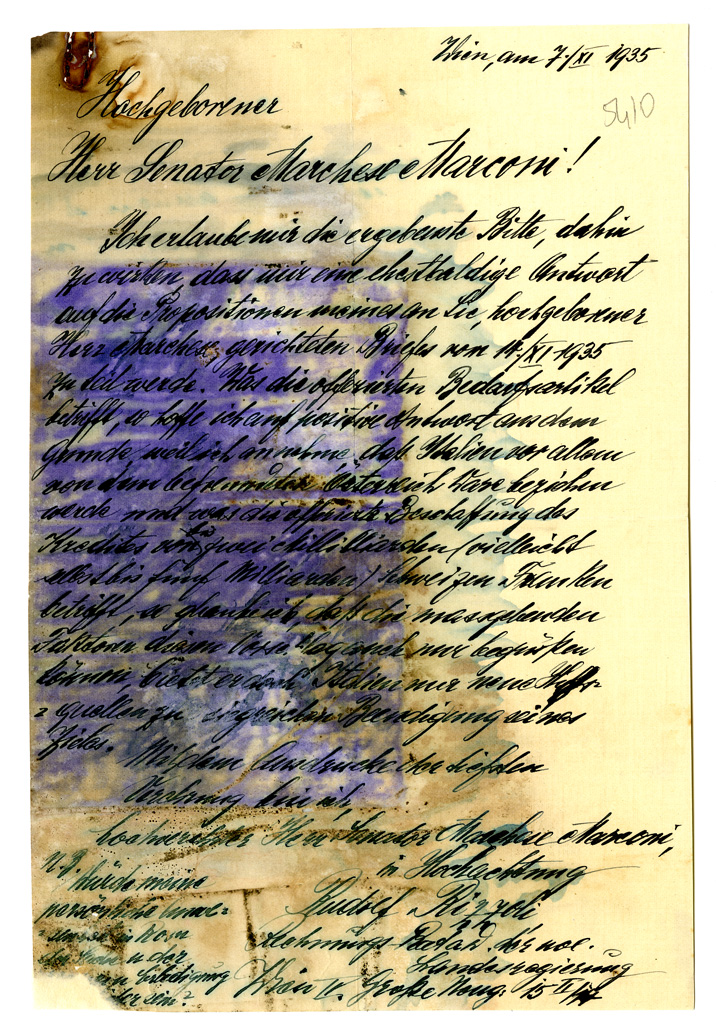 Wien, am 7./XI 1935
5410
Hochgeborener
Herr Senator Marchese Marconi!
Ich erlaube mir die ergebenste Bitte, dahin
zu wirken, dass mir eine ehestbaldige Antwort
auf die Propositionen meines an Sie, hochgeborener
Herr Marchese, gerichteten Briefes vom /XI 1935
zu teil werde. Was die offerierten Bedarfsartikel
betrifft, so hoffe ich auf positive Antwort aus dem
Grunde, weil ich annehme, daß Italien vor allem
von dem befreundeten Österreich Ware beziehen
werde und was die offerierte Beschaffung des
Kredites von zwei Milliarden (vielleicht
selbst bis fünf Milliarden) Schweizer Franken
betrifft, so glaube ich, daß die massgebenden
Faktoren diesen Vorschlag auch nur begrüßen
können, bietet er doch Italien nur neue Hilfs-
quellen zu siegreichen Beendigung seines
Zieles.
Mit dem Ausdrucke der tiefsten
Verehrung bin ich,
hochverehrter Herr Senator Marchese Marconi,
in Hochachtung
Rudolf Rizzoli
Rechnungs
Landesregierung
Wien IV. Große Neug. 15
Würde meine
persönliche Anwe-
in Rom
der
Erledigung
sein?